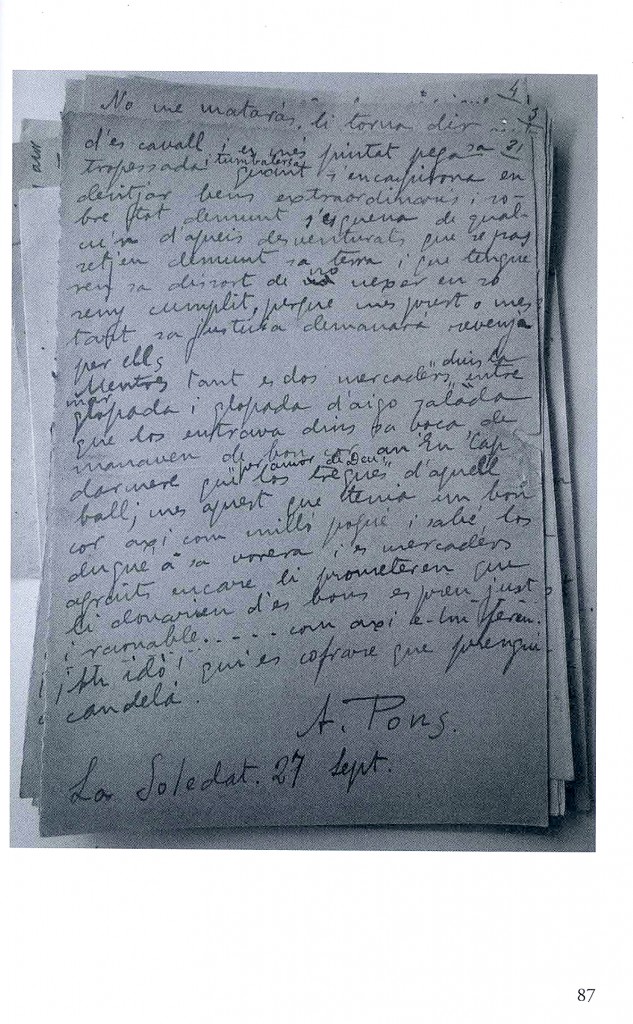 No me matarás, li torna dir
4
3
d'es cavall i es més pintat pega sa
tropessada i tumbaterra s'encapirona en
demunt s'esquena de qual-
cu'n d'aqueis desventurats que se pas
setjen demunt sa terra i que tengue
ren sa dissort de no nexer en so
seny cumplit, perque mes prest o mes
tart sa justicia demanará revenja
per ells
Mentres tant es dos mercaders "dins la
mar" entre
glopada i glopada d'aigo salada
que los entrava dins sa boca, de
manaven de bon cor an En Cap
darmere qui los tregués "per amor de Deu" d'aquell
ball; mes aquest que tenia un bon
cor axi com milló pogué i sabé, los
dugué á sa vorera i es mercaders
agraits encare li prometeren que
li donarien d'es bous es preu just
i racionable..... com axi e-hu feren.
¡Ah idò! qui es cofrare que prengui
candela.
A. Pons.
La Soledat. 27 Sept.
87